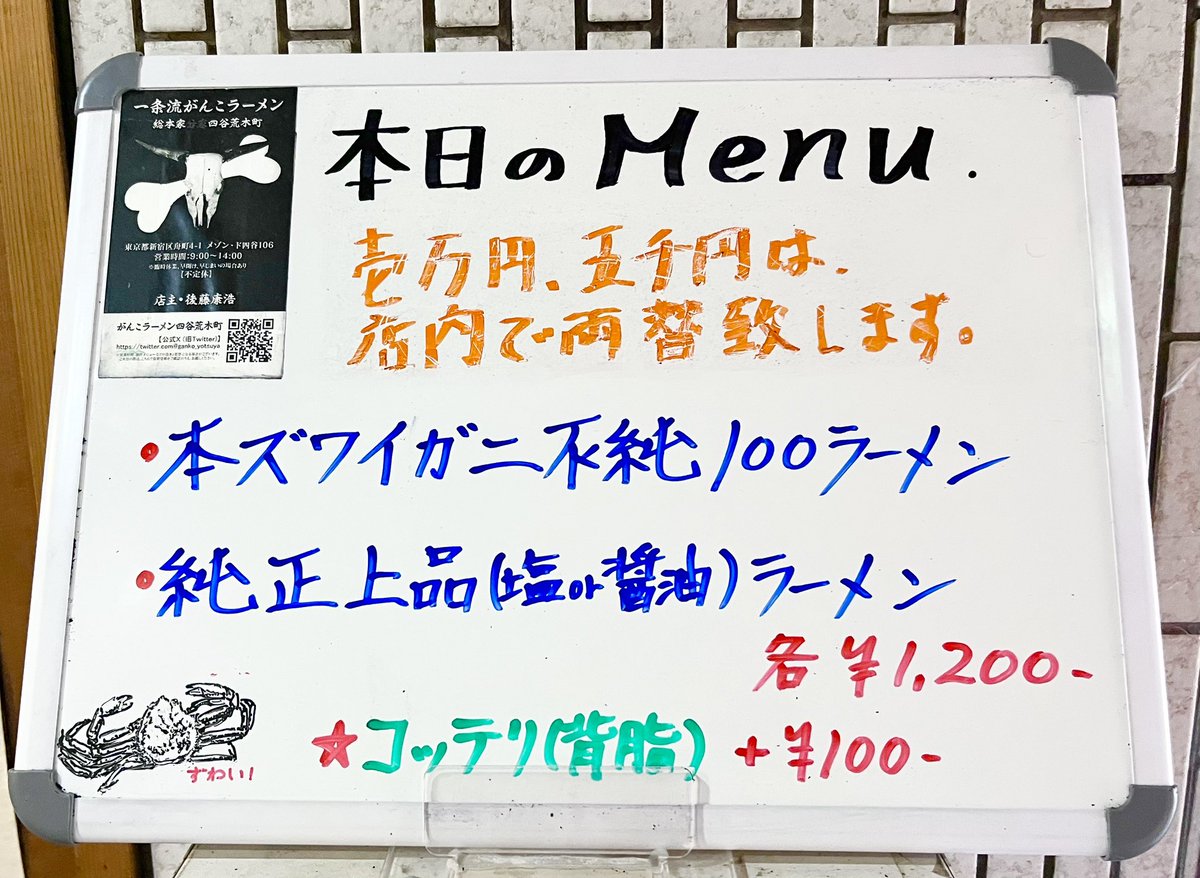 一条流がんこラーメン
総本家分家四谷荒木町
東京都新宿区舟町4-1 メゾン・ド四谷106
営業時間:9:00〜14:00
※臨時休業、早開け、早じまいの場合あり
【不定休】
店主・後藤康浩
がんこラーメン四谷荒木町
【公式X(旧Twitter)】
https://twitter.com/@ganko_yotsuya
本日のMenu.
壱万円、五千円は、
店内で両替致します。
・本ズワイガニ不純100ラーメン
・純正上品(塩or醤油)ラーメン
各¥1,200-
★コッテリ(背脂) +¥100-
ずわい!